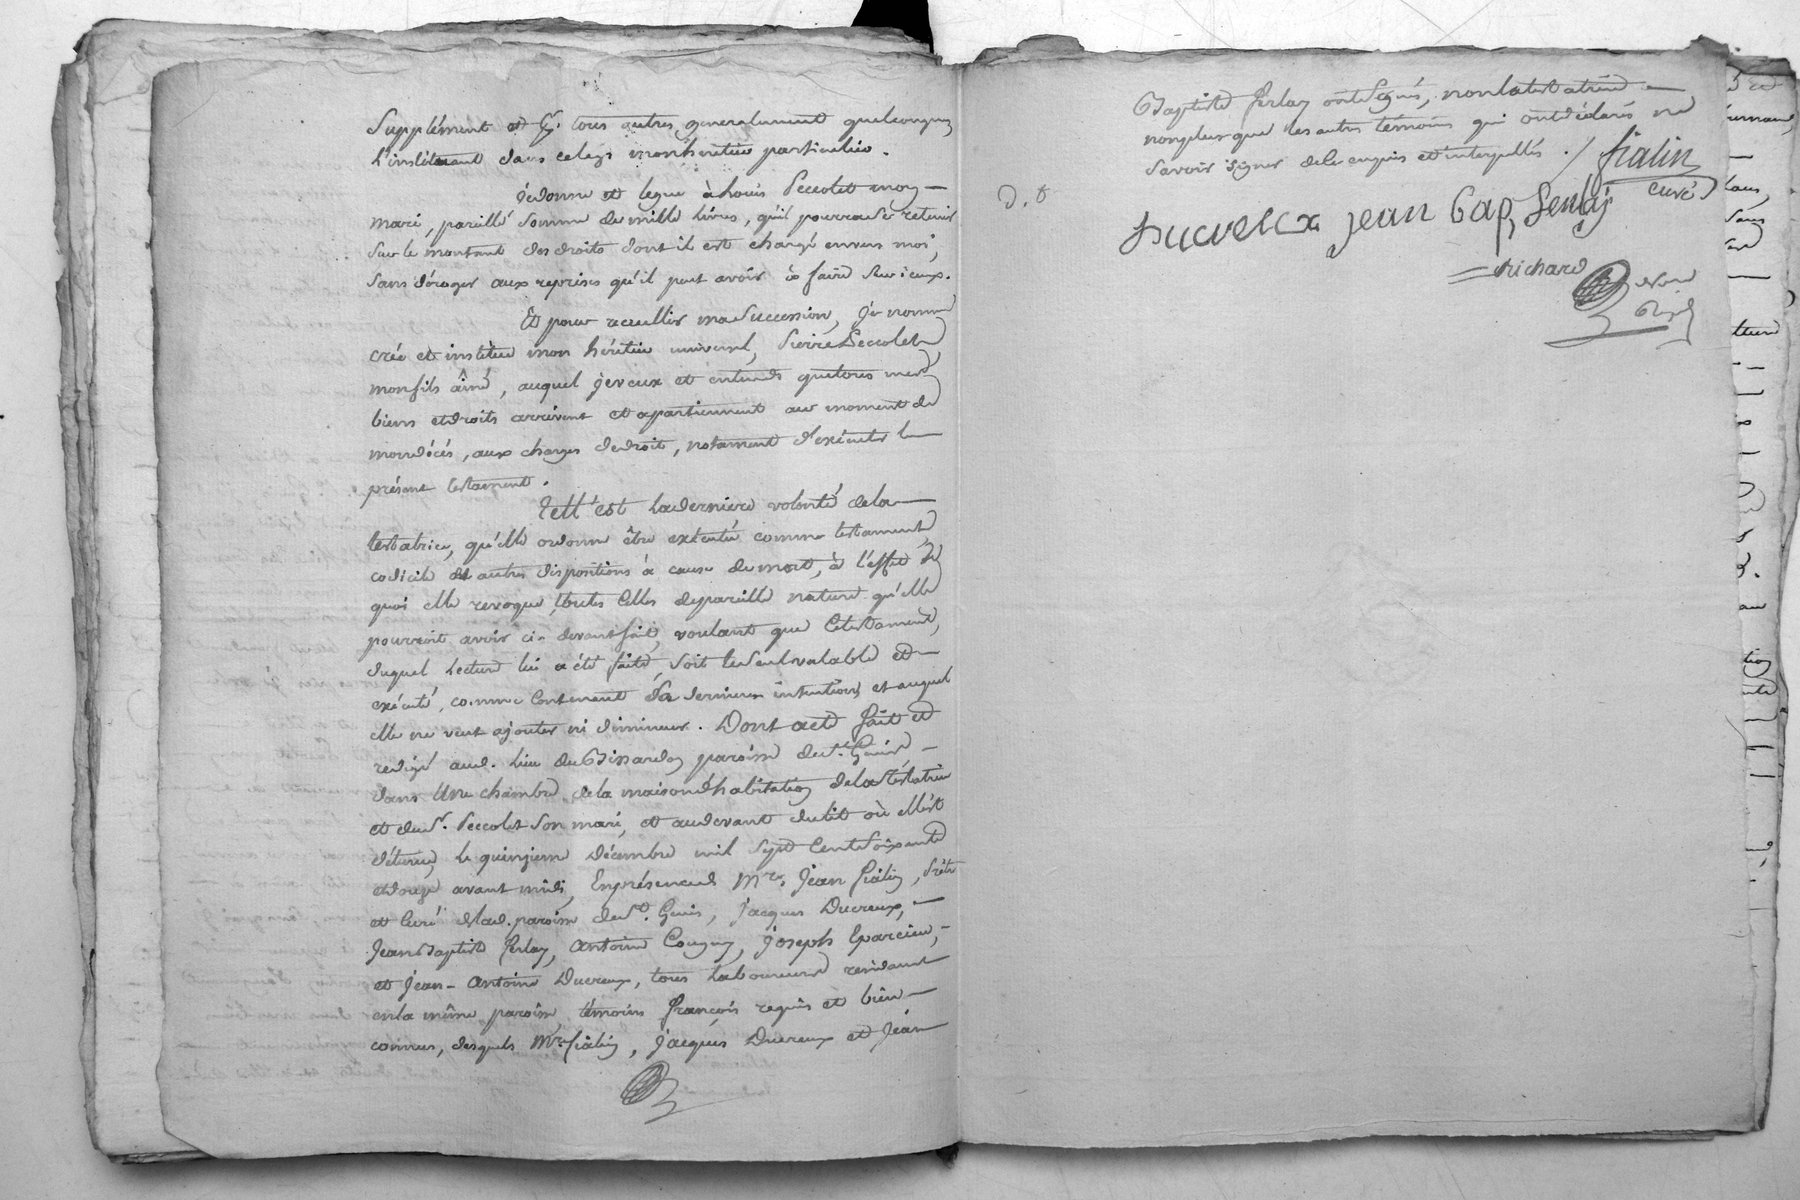 Supplément et tous autres generalement quelconques
L'instituant dans celegs mon héritier particulier.
Je donne et legue à Louis Peccolet mon
mari, pareille somme de mille livres, qu'il pourra se retenir
sur le montant des droits dont il est chargé envers moi,
sans déroger aux reprises qu'il peut avoir à faire sur iceux.
Et pour recueillir ma succession, je nomme
crée et institue mon héritier universel, Pierre Peccolet
mon fils aîné, auquel je veux et entends que tous mes
biens et droits arrivent et apartiennent au moment de
mon décés, aux charges de droit, notament d'exécuter le
présent testament.
Telle est la derniere volonté de la
testatrice, qu'elle ordonne être exécutée comme testament,
codicile et autres dispositions à cause de mort, à l'effet de
quoi elle revoque toutes celles de pareille nature qu'elle
pourroit avoir ci-devant fait, voulant que ce testament,
duquel lecture lui a été faite, soit le seul valable et
exécuté, comme contenant sa derniere intention, et auquel
elle ne veut ajouter ni diminuer. Dont acte fait et
redigé aud. lieu du paroisse de St. Genis
dans une chambre de la maison d'habitation de la testatrice
et du Sr. Peccolet son mari, et au devant du lit où elle est
détenue, le quinzieme décembre mil sept cent soixante
et douze avant midi, En présence de Mre. Jean fialin, Prêtre
et Curé de lad. paroisse de St. Genis, Jacques Ducreux,
Jean Baptiste ferlay, Antoine Cougny, Joseph Eparcieu,
et Jean-Antoine Ducreux, tous laboureurs residant
en la même paroisse, témoins françois requis et bien
connus, desquels Mre. fialin, Jacques Ducreux et Jean
Baptiste ferlay ont signé, non la testatrice
non plus que les autres témoins qui ont déclarés ne
savoir signer de ce enquis et interpellés. /
fialin
curé
D. 8
Ducreux Jean Bap
Richard